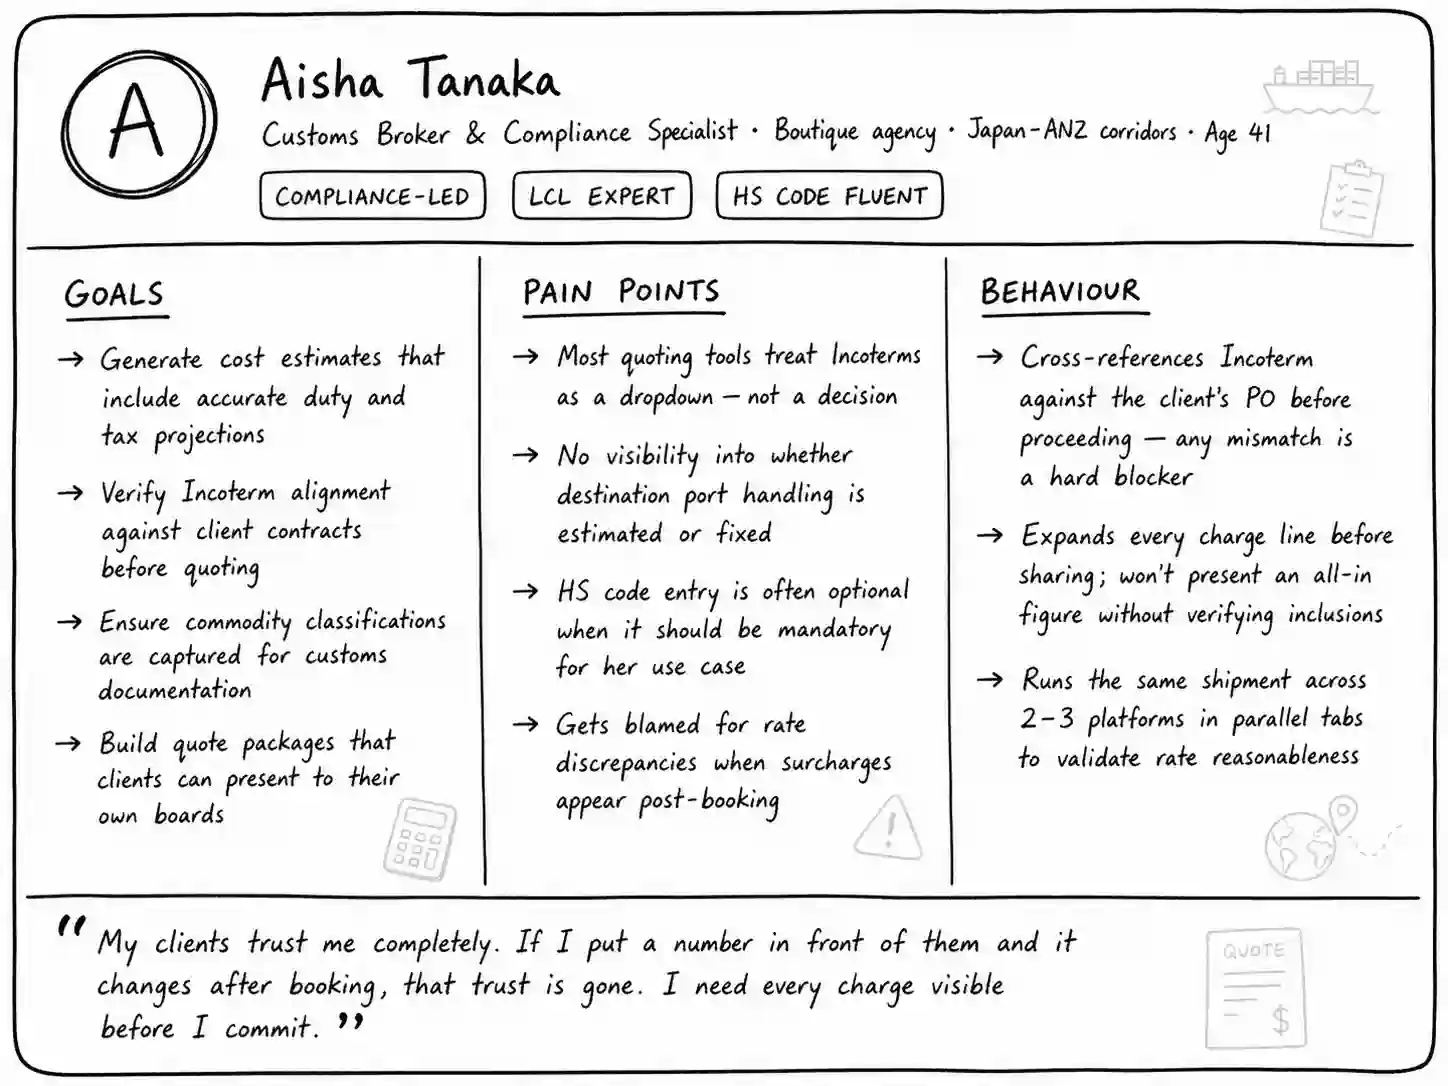 A
Aisha Tanaka
Customs Broker & Compliance Specialist · Boutique agency · Japan-ANZ corridors · Age 41
COMPLIANCE-LED
LCL EXPERT
HS CODE FLUENT
GOALS
→ Generate cost estimates that
include accurate duty and
tax projections
→ Verify Incoterm alignment
against client contracts
before quoting
→ Ensure commodity classifications
are captured for customs
documentation
→ Build quote packages that
clients can present to their
own boards
PAIN POINTS
→ Most quoting tools treat Incoterms
as a dropdown — not a decision
→ No visibility into whether
destination port handling is
estimated or fixed
→ HS code entry is often optional
when it should be mandatory
for her use case
→ Gets blamed for rate
discrepancies when surcharges
appear post-booking
BEHAVIOUR
→ Cross-references Incoterm
against the client's PO before
proceeding — any mismatch is
a hard blocker
→ Expands every charge line before
sharing; won't present an all-in
figure without verifying inclusions
→ Runs the same shipment across
2-3 platforms in parallel tabs
to validate rate reasonableness
“My clients trust me completely. If I put a number in front of them and it
changes after booking, that trust is gone. I need every charge visible
before I commit.”
QUOTE
$